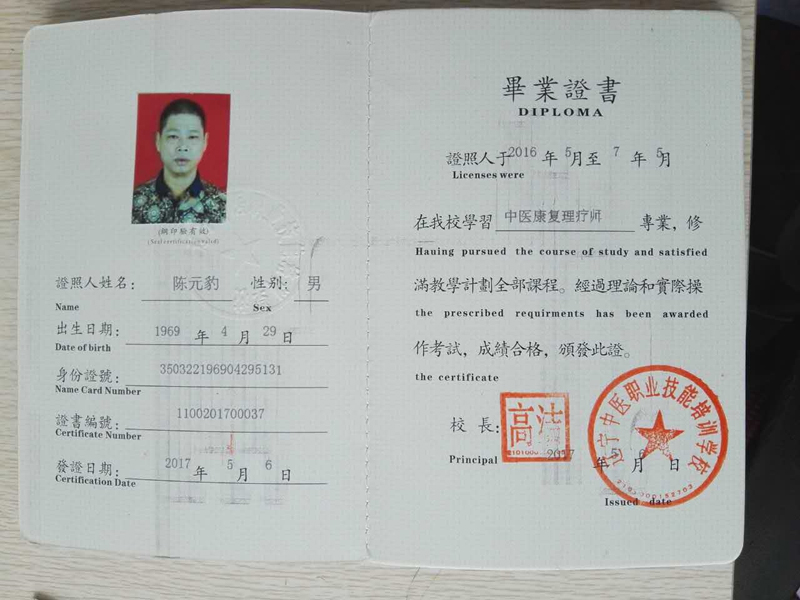 (鋼印驗有效)
(Seal certification valid)
證照人姓名: 陈元豹 性别: 男
Name Sex
出生日期: 1969 年 4 月 29 日
Date of birth
身份證號: 350322196904295131
Name Card Number
證書編號: 1100201700037
Certificate Number
發證日期: 2017 年 5 月 6 日
Certification Date
畢業證書
DIPLOMA
證照人于 2016 年 5 月至 7 年 5 月
Licenses were
在我校學習 中医康复理疗师 專業，修
Hauing pursued the course of study and satisfied
滿教學計劃全部課程。經過理論和實際操
the prescribed requirments has been awarded
作考試，成績合格，頒發此證。
the certificate
校 長:
Principal
2017 年 5 月 6 日
Issued date
辽宁中医职业技能培训学校